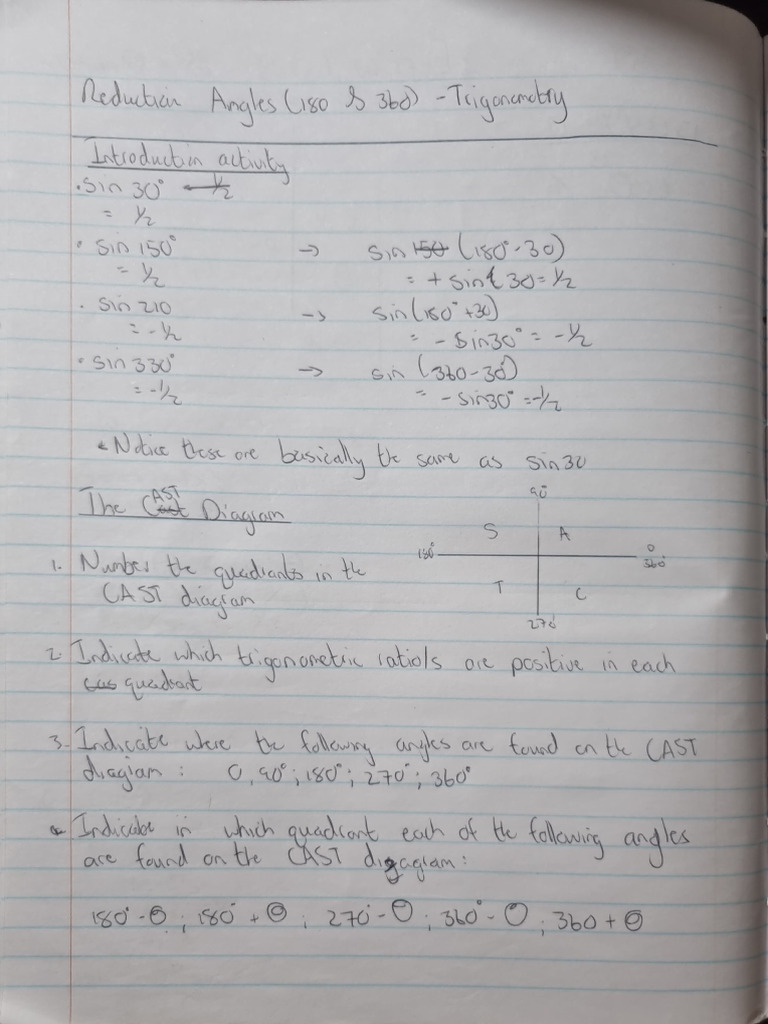 Reduction Angles (180 & 360) - Trigonometry
Introduction activity
• sin 30° 1/2
= 1/2
• sin 150° → sin 150 (180° - 30)
= 1/2 = + sin 30 = 1/2
• sin 210 → sin (180° + 30)
= -1/2 = - sin30° = -1/2
• sin 330° → sin (360 - 30°)
= -1/2 = - sin30° = -1/2
* Notice these are basically the same as sin 30
The Cast CAST Diagram
90°
S A
180° 0
360°
T C
270°
1. Number the quadrants in the
CAST diagram
2. Indicate which trigonometric ratiols are positive in each
cas quadrant
3. Indicate were the following angles are found on the CAST
diagram : 0, 90°; 180°; 270°; 360°
* Indicate in which quadrant each of the following angles
are found on the CAST digagram:
180° - θ ; 180° + θ ; 270° - θ ; 360° - θ ; 360 + θ